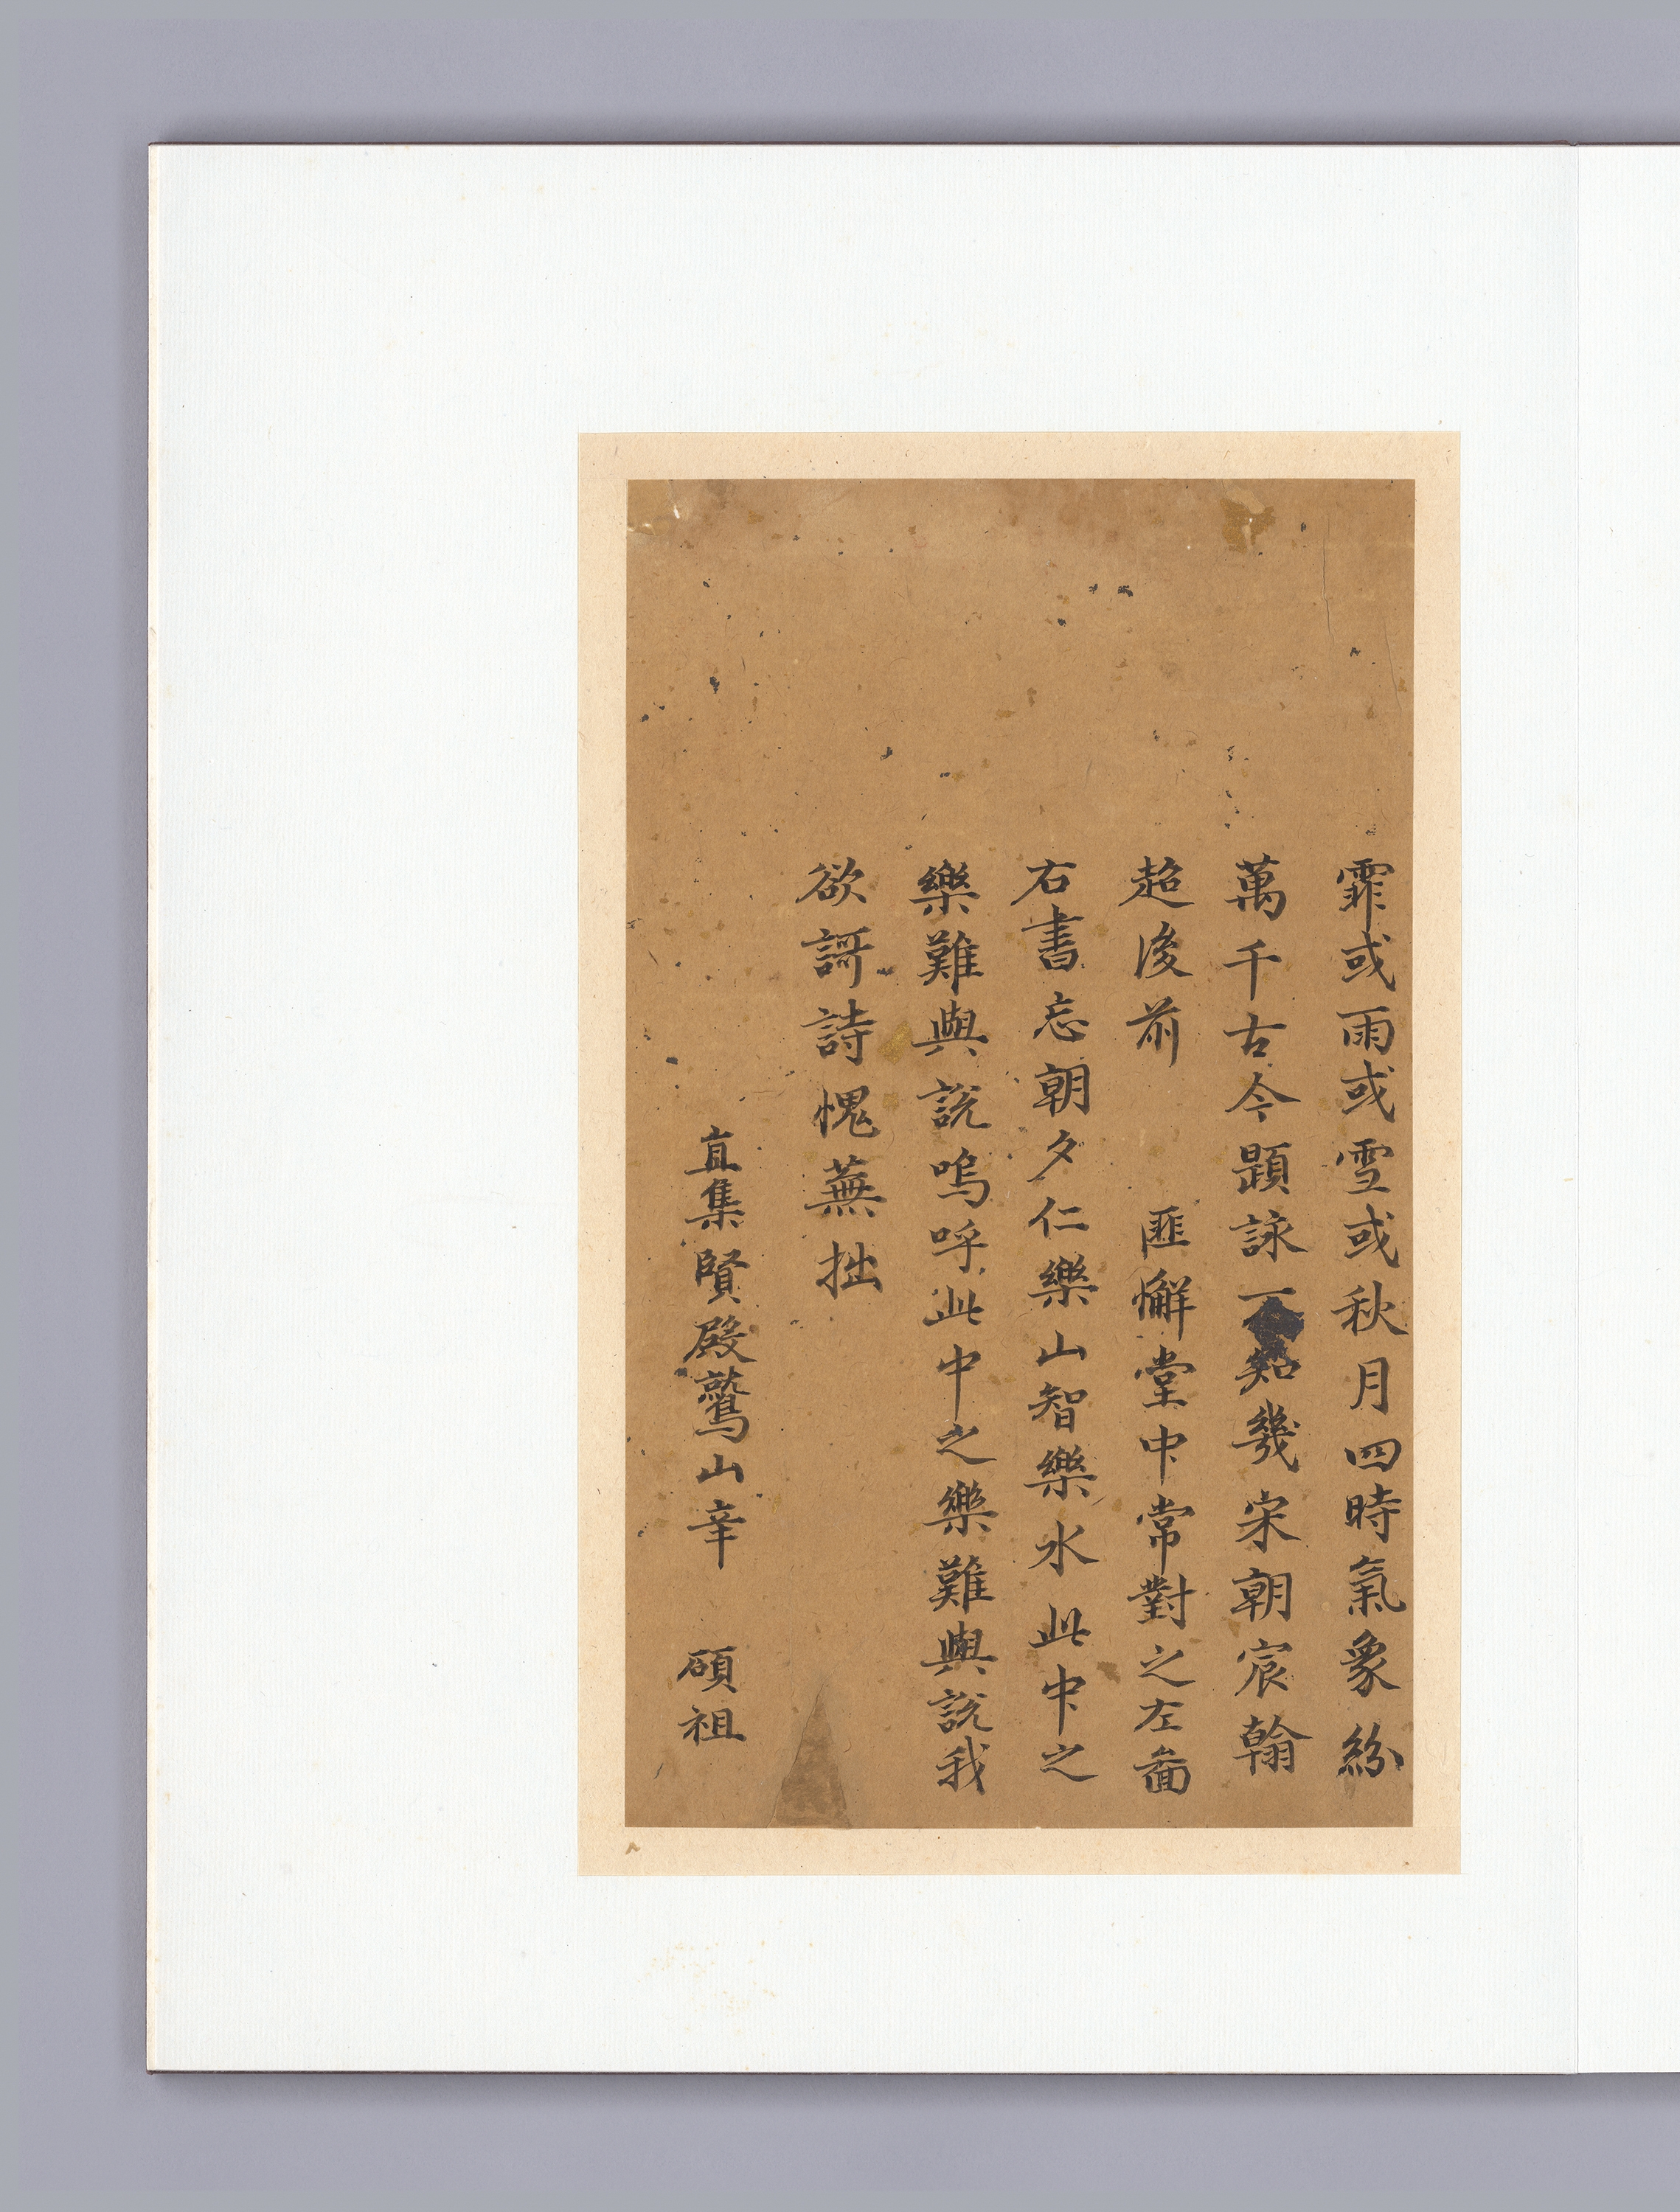 霏或雨或雪或秋月四時氣象紛
萬千古今題詠不知幾宋朝宸翰
超後前　匪懈堂中常對之左圖
右書忘朝夕仁樂山智樂水此中之
樂難與說嗚呼此中之樂難與說我
欲謌詩愧蕪拙
直集賢殿鷲山辛　碩祖